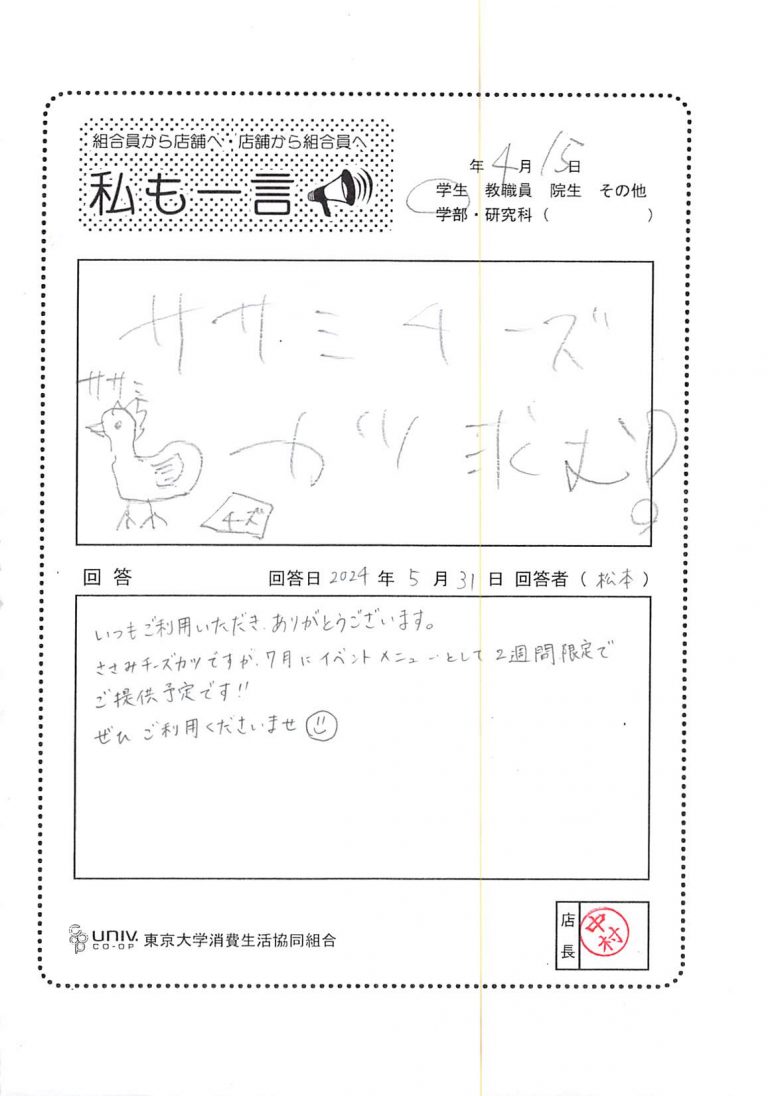 組合員から店舗へ・店舗から組合員へ
私も一言
年 4月 15日
学生 教職員 院生 その他
学部・研究科( )
ササミチーズ
カツ求む!
ササミ
チーズ
回答 回答日 2024年 5月 31日 回答者(松本)
いつもご利用いただき、ありがとうございます。
ささみチーズカツですが、7月にイベントメニューとして2週間限定で
ご提供予定です!!
ぜひご利用くださいませ
店長
中村
UNIV.
CO-OP
東京大学消費生活協同組合